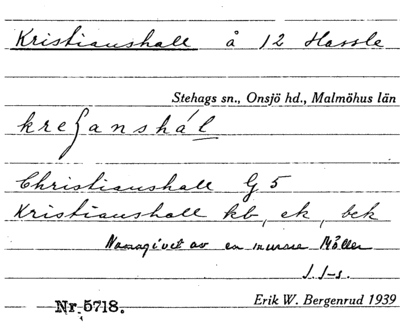 Kristianshall å 12 Hassle
Stehags sn., Onsjö hd., Malmöhus län
kreʃanshál
Christianshall G 5
Kristianshall kb, ek, bek
Namngivet av en murare Möller
J. J-s.
Nr. 5718. Erik W. Bergenrud 1939